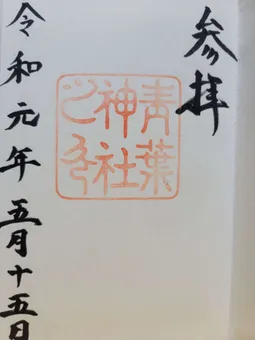 参拝
青葉
神社
令和元年五月十五日